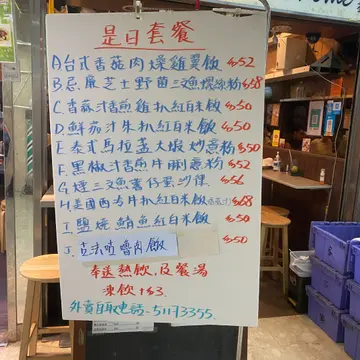 是日套餐
A 台式香菇肉燥雞翼飯 $52
B 忌廉芝士野菌三文魚螺絲粉 $58
C 香蘇汁香煎雞扒紅白米飯 $50
D 鮮茄汁朱扒紅白米飯 $50
E 泰式馬拉盞大蝦炒意粉 $50
F. 黑椒汁香煎牛脷意粉 $52
G 煙三文魚薯仔蛋沙律 $56
H 美國西冷牛扒紅白米飯 $68
I 鹽燒鯖魚紅白米飯 $50
J. 滷肉飯 $50
奉送熱飲及餐湯
凍飲+$3
外賣自取電話-51173355